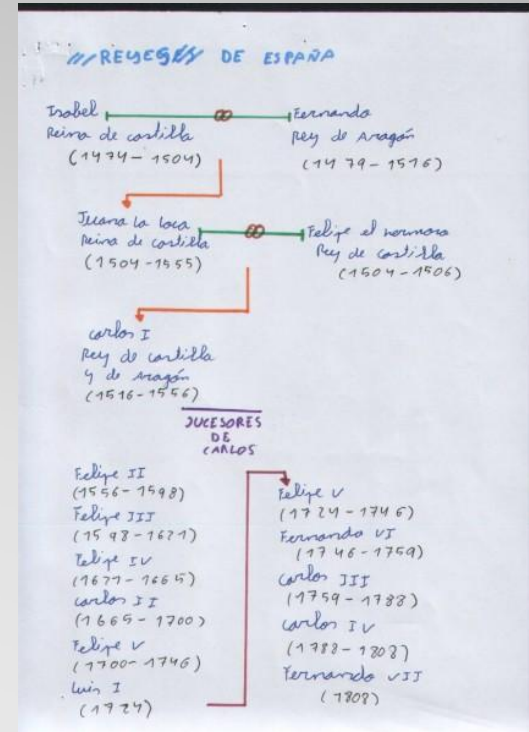 REYES DE ESPAÑA
Isabel
Reina de castilla
(1474-1504)
Fernando
Rey de Aragón
(1479-1516)
Juana la loca
Reina de castilla
(1504-1555)
Felipe el hermoso
Rey de castilla
(1504-1506)
Carlos I
Rey de castilla
y de Aragón
(1516-1556)
SUCESORES
DE
CARLOS
Felipe II
(1556-1598)
Felipe III
(1598-1621)
Felipe IV
(1621-1665)
Carlos II
(1665-1700)
Felipe V
(1700-1746)
Luis I
(1724)
Felipe V
(1724-1746)
Fernando VI
(1746-1759)
Carlos III
(1759-1788)
Carlos IV
(1788-1808)
Fernando VII
(1808)